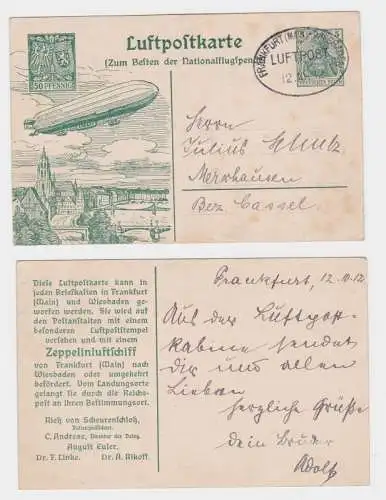 50 PFENNIG
Luftpostkarte
(Zum Besten der Nationalflugspende
5
FRANKFURT (MAIN)
LUFTPOST
12
DEUTSCHES REICH
Herrn
Julius
Merxhausen
Bez. Cassel.
Diese Luftpostkarte kann in
jeden Briefkasten in Frankfurt
(Main) und Wiesbaden ge-
worfen werden. Sie wird auf
den Postanstalten mit einem
besonderen Luftpoststempel
versehen und mit einem
Zeppelinluftschiff
von Frankfurt (Main) nach
Wiesbaden oder umgekehrt
befördert. Vom Landungsorte
gelangt sie durch die Reichs-
post an ihren Bestimmungsort.
Rietz von Scheurenschloß,
C. Andreae, Direktor der Delag.
August Euler.
Dr. F. Linke. Dr. A. Rikoff.
Frankfurt, 12.
Aus der Luftpost-
kabine sendet
dir und allen
Lieben
herzliche Grüße
dein Bruder
Adolf